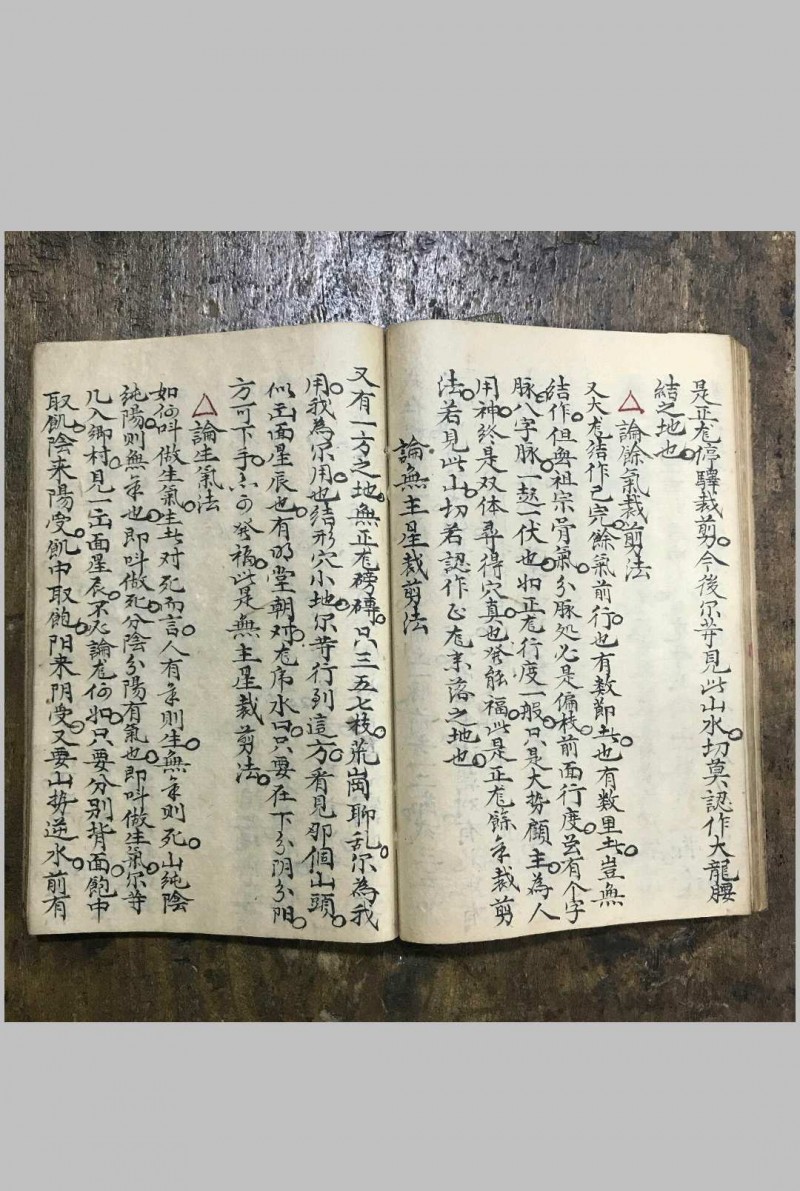 是正尨停驛裁剪。今後尔等見此山水。切莫認作大龍腰
結之地也。
論餘氣裁剪法
又大尨結作已完。餘氣前行也有数節此也有数里此。豈無
結作。但無祖宗骨氣。分脉処必是偏枝。前面行度。虽有个字
脉。八字脉。一起一伏也。如正尨行度一般。只是大势顧主。為人
用神。终是双体。尋得穴真也發能福。此是正尨餘气裁剪
法。若見此山。切若認作正尨末落之地也。
論無主星裁剪法
又有一方之地。無正尨磅礡。只三五七枝。荒崗聊乱。尔為我
用。我為尔用也。结形穴小地。尔等行列這方。看見那個山頭。
似玉面星辰也。有明堂朝对。尨虎水口。只要在下分阴分阳。
方可下手。亦可發福。此是無主星裁剪法。
論生氣法
如何叫做生氣。生此对死而言。人有气則生。無气則死。山純陰
純陽則無气也。即叫做死。分陰分陽有氣也。即叫做生氣。尔等
凡入鄉村。見一岳面星辰。不必論尨何如。只要分别背面。飽中
取飢。陰来陽受。飢中取飽。阳来阴受。又要山势逆水。前有